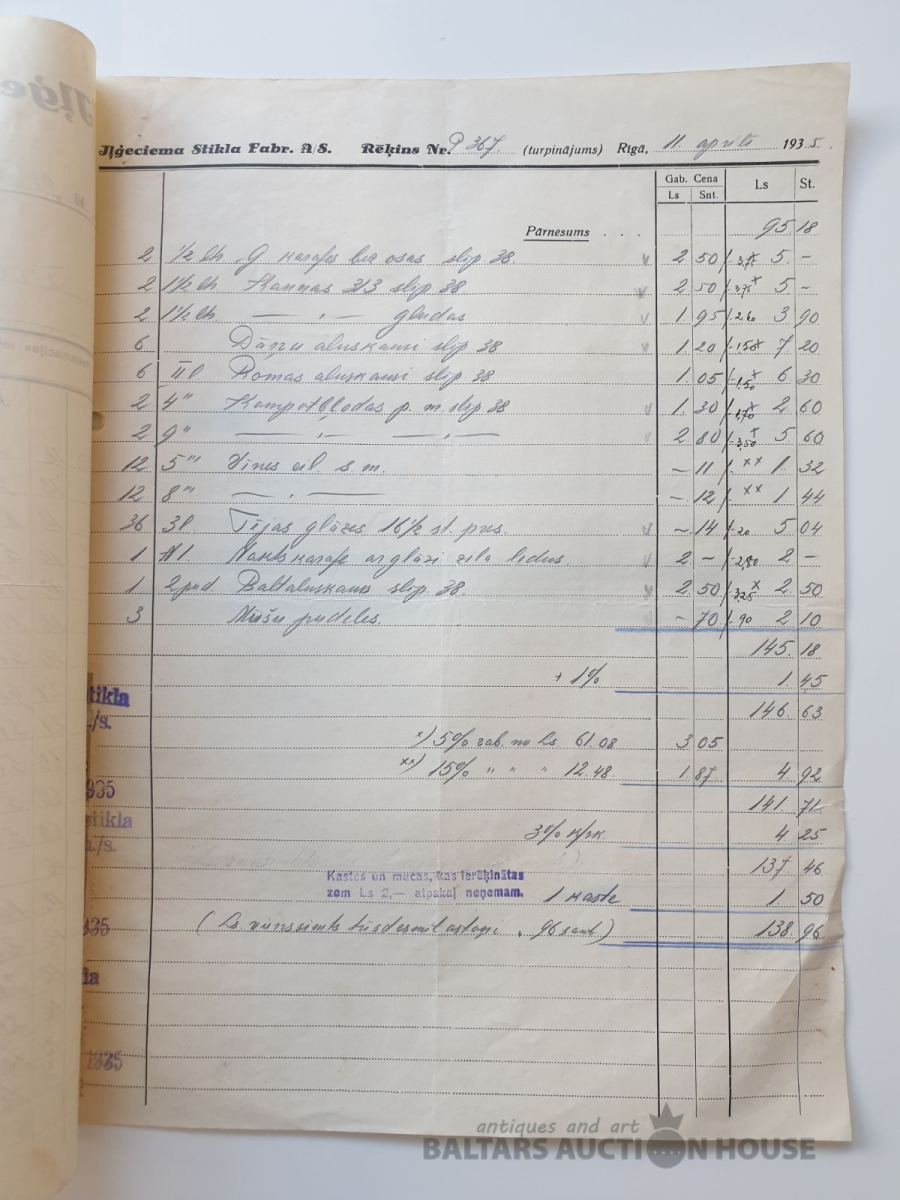 Iļģeciema Stikla Fabr. A/S. Rēķins Nr. P 367 (turpinājums) Rīgā, 11. aprilī 1935.
Gab. Cena Ls St.
Ls Snt.
Pārnesums . . . 95 18
2 1/2 ltr. karafes bez osas slip 38 2 50 3,75 5 -
2 1 1/2 lh Kannas 2/3 slip 38 2 50 3,75 x 5 -
2 1 1/2 lh — „ — gludas 1 95 2,60 3 90
6 Dāņu aluskausi slip 38 1 20 1,50 x 7 20
6 III Romas aluskausi slip 38 1 05 1,50 x 6 30
2 4" Kompotbļodas p. m. slip 38 1 30 1,70 x 2 60
2 9" — „ — — „ — 2 80 3,50 x 5 60
12 5''' Vīnes cil. s. m. - 11 xx 1 32
12 8''' — „ — - 12 xx 1 44
36 3l Tējas glāzes 16 1/2 st. pres. - 14 -20 5 04
1 Nakts karafe ar glāzi zila ledus. 2 - 2,80 2 -
1 2 pud. Baltaluskauss slip. 38. 2 50 3,25 x 2 50
3 Mūšu pudeles. - 70 -90 2 10
145 18
+ 1% 1 45
146 63
x) 5% rab. no Ls 61.08 3 05
xx) 15% " " " 12.48 1 87 4 92
141 71
3% k/rk. 4 25
137 46
Kastes un mucas, kas ierēķinātas
zem Ls 2,— atpakaļ neņemam.
1 kaste 1 50
(Ls viensimts trīsdesmit astoņi, 96 sant.) 138 96
stikla
./s.
935
stikla
./s.
935
1935
antiques and art
BALTARS AUCTION HOUSE